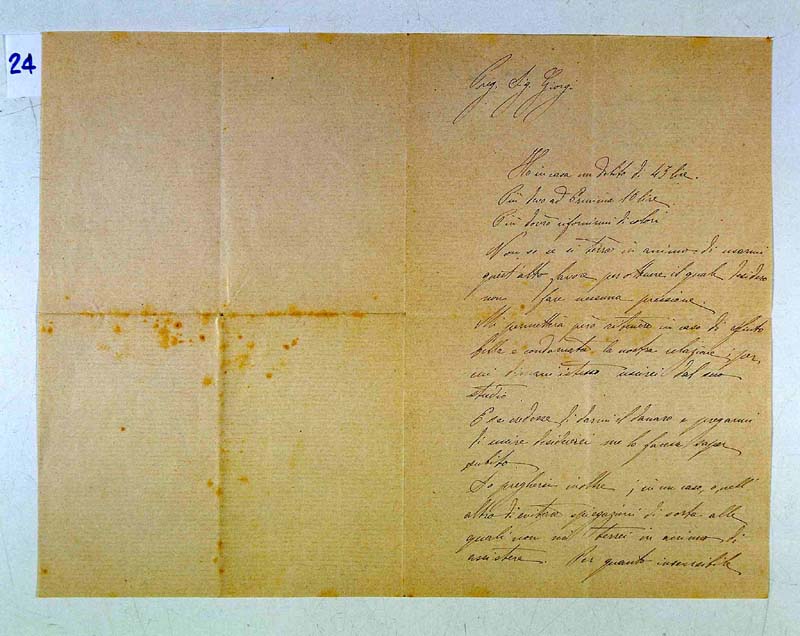 24
Preg. Sig. Giorgi
Ho in casa un debito di 43 lire.
Più devo ad Erminio 10 lire
E più dovrò rifornirmi di colori
Non so se si terrà in animo di usarmi
quest'alto favore per ottenere il quale desidero
non fare nessuna pressione.
Mi permetterà però ritenere in caso di rifiuto
bella e condannata la nostra relazione, per
cui domani istesso uscirei dal suo
studio.
E se credesse di darmi il danaro e pregarmi
di uscire desidererei me lo faccia saper
subito
La pregherei inoltre, in un caso, o nell'
altro di evitare spiegazioni di sorta alle
quali non mi terrei in animo di
assistere. Per quanto insensibile